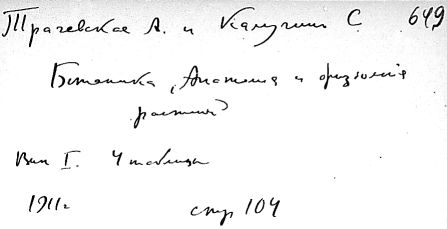 Трачевская А. и Калугин С 649
Ботаника, Анатомия и физиологія
растений
Вып I. 4 таблицы
1911г стр 104